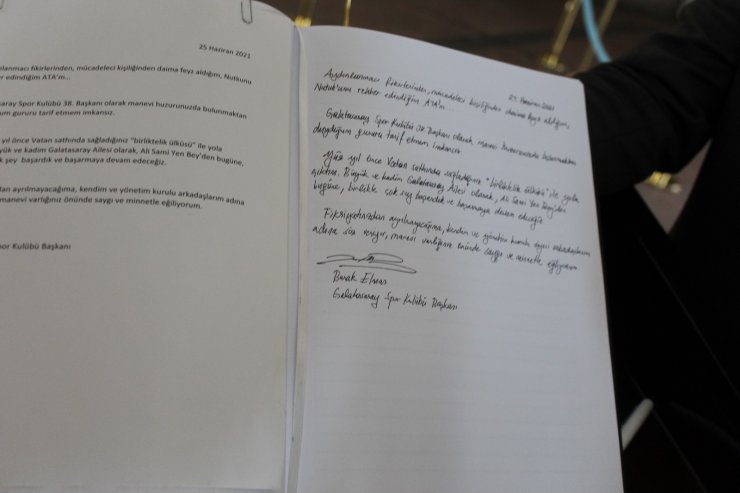 25 Haziran 2021
lanmacı fikirlerinden, mücadeleci kişiliğinden daima feyz aldığım, Nutkunu
er edindiğim ATA'm...
saray Spor Kulübü 38. Başkanı olarak manevi huzurunuzda bulunmaktan
um gururu tarif etmem imkansız.
yıl önce Vatan sathında sağladığınız "birliktelik ülküsü" ile yola
yük ve kadim Galatasaray Ailesi olarak, Ali Sami Yen Bey'den bugüne,
k şey başardık ve başarmaya devam edeceğiz.
tan ayrılmayacağıma, kendim ve yönetim kurulu arkadaşlarım adına
manevi varlığınız önünde saygı ve minnetle eğiliyorum.
por Kulübü Başkanı
25 Haziran 2021
Aydınlanmacı fikirlerinden, mücadeleci kişiliğinden daima feyz aldığım,
Nutuk'unu rehber edindiğim ATA'm...
Galatasaray Spor Kulübü 38. Başkanı olarak, manevi huzurunuzda bulunmaktan
duyduğum gururu tarif etmem imkansız.
Yüz yıl önce Vatan sathında sağladığınız "birliktelik ülküsü" ile yola
çıktık. Büyük ve kadim Galatasaray Ailesi olarak, Ali Sami Yen Bey'den
bugüne, birlikte çok şey başardık ve başarmaya devam edeceğiz.
Fikriyatınızdan ayrılmayacağıma, kendim ve yönetim kurulu üyesi arkadaşlarım
adına söz veriyor, manevi varlığınız önünde saygı ve minnetle eğiliyorum.
Burak Elmas
Galatasaray Spor Kulübü Başkanı